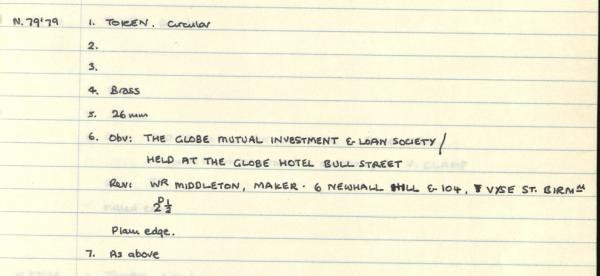 N.79'79 1. TOKEN. Circular
2.
3.
4. Brass
5. 26 mm
6. Obv: THE GLOBE MUTUAL INVESTMENT & LOAN SOCIETY/
HELD AT THE GLOBE HOTEL BULL STREET
Rev: WR MIDDLETON, MAKER · 6 NEWHALL HILL & 104, VYSE ST. BIRMM
2D ½
Plain edge.
7. As above